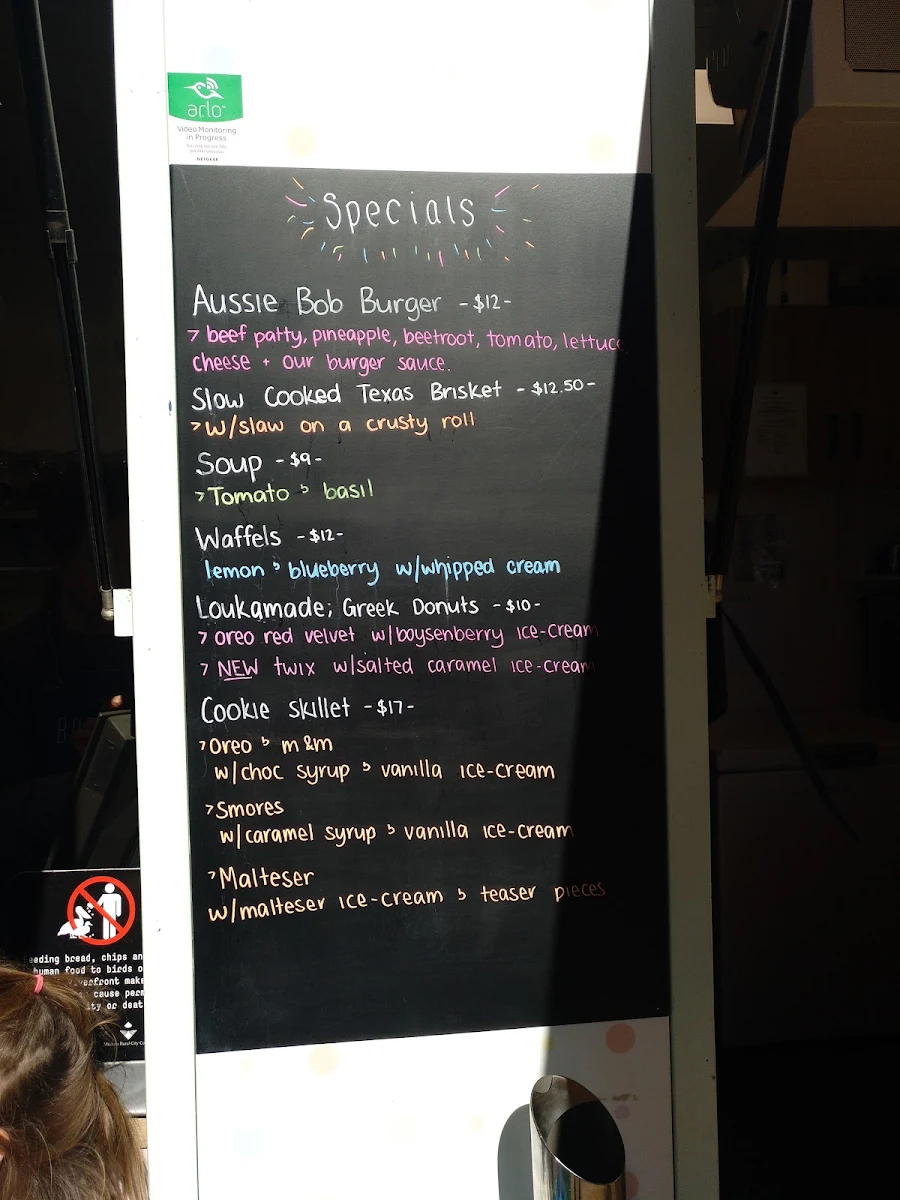 arlo
Video Monitoring
in Progress
NETGEAR
Specials
Aussie Bob Burger - $12-
> beef patty, pineapple, beetroot, tomato, lettuce
cheese + our burger sauce.
Slow Cooked Texas Brisket - $12.50 -
> w/slaw on a crusty roll
Soup - $9 -
> Tomato & basil
Waffels - $12-
lemon & blueberry w/whipped cream
Loukamade; Greek Donuts - $10 -
> oreo red velvet w/boysenberry ice-cream
> NEW twix w/salted caramel ice-cream
Cookie skillet - $17 -
> Oreo & m&m
w/choc syrup & vanilla ice-cream
> Smores
w/caramel syrup & vanilla ice-cream
> Malteser
w/malteser ice-cream & teaser pieces
eeding bread, chips an
human food to birds o
erfront mak
cause perm
ity or deat